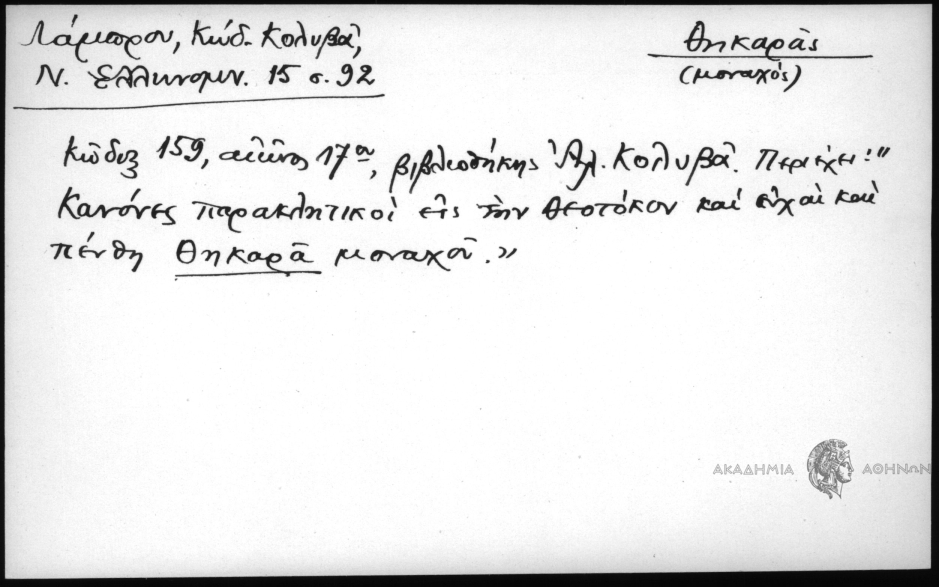 Λάμπρου, Κώδ. Κολυβᾶ,
Ν. Ἑλληνομν. 15 σ. 92
Θηκαρᾶς
(μοναχός)
Κῶδιξ 159, αἰῶνος 17ου, βιβλιοθήκης Ἀλ. Κολυβᾶ. Περιέχει: "
Κανόνες παρακλητικοὶ εἰς τὴν Θεοτόκον καὶ εὐχαὶ καὶ
πένθη Θηκαρᾶ μοναχοῦ.»
ΑΚΑΔΗΜΙΑ ΑΘΗΝΩΝ